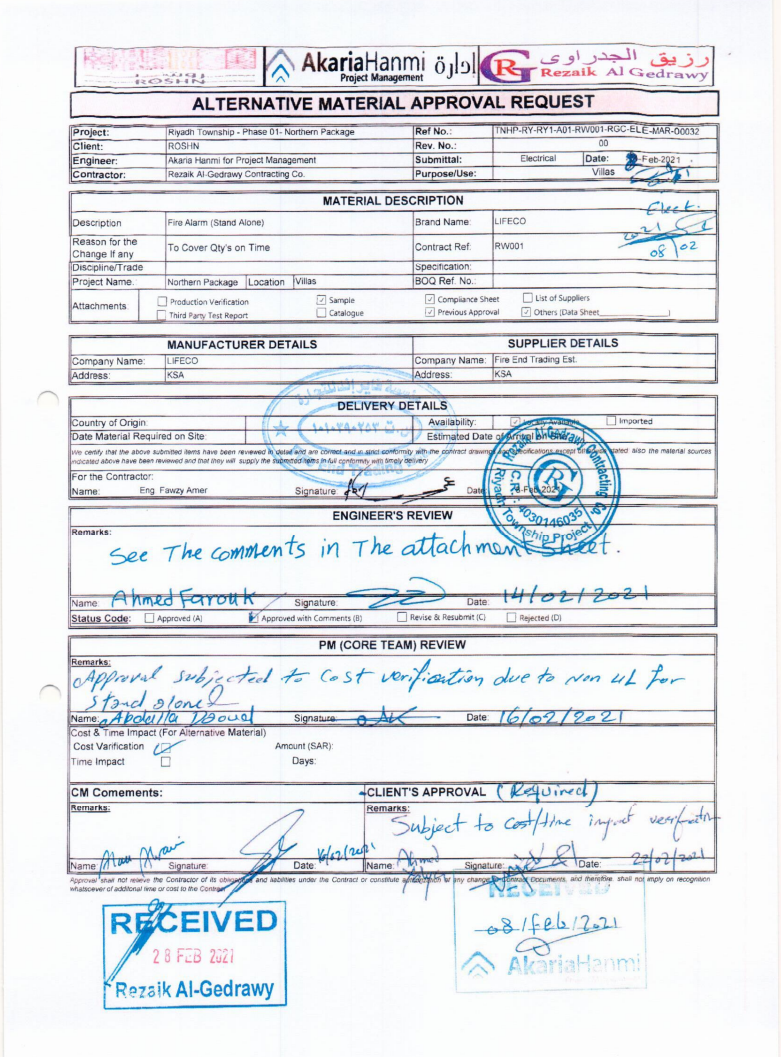 ROSHN
AkariaHanmi إدارة
Project Management
رزيق الجدراوى
Rezaik Al Gedrawy
ALTERNATIVE MATERIAL APPROVAL REQUEST
Project: Riyadh Township - Phase 01- Northern Package Ref No.: TNHP-RY-RY1-A01-RW001-RGC-ELE-MAR-00032
Client: ROSHN Rev. No.: 00
Engineer: Akaria Hanmi for Project Management Submittal: Electrical Date: -Feb-2021
Contractor: Rezaik Al-Gedrawy Contracting Co. Purpose/Use: Villas
MATERIAL DESCRIPTION
Elect.
Description Fire Alarm (Stand Alone) Brand Name: LIFECO
2021
08 02
Reason for the Change If any To Cover Qty's on Time Contract Ref: RW001
Discipline/Trade Specification:
Project Name.: Northern Package Location Villas BOQ Ref. No.:
Attachments Production Verification Sample Compliance Sheet List of Suppliers
Third Party Test Report Catalogue Previous Approval Others (Data Sheet )
MANUFACTURER DETAILS SUPPLIER DETAILS
Company Name: LIFECO Company Name: Fire End Trading Est.
Address: KSA Address: KSA
DELIVERY DETAILS
Country of Origin: Availability: Locally Available Imported
Date Material Required on Site: Estimated Date of Arrival on Site
١٠١٠٢٩٠٢٥٢
We certify that the above submitted items have been reviewed in detail and are correct and in strict conformity with the contract drawings and specifications except otherwise stated also the material sources
indicated above have been reviewed and that they will supply the submitted items in full conformity with timely delivery
For the Contractor:
Name: Eng. Fawzy Amer Signature: Date: -Feb-2021
Rezaik Al Gedrawy Contracting Co.
C.R.: 4030146035
Riyadh Township Project
ENGINEER'S REVIEW
Remarks:
See The comments in The attachment Sheet.
Name: Ahmed Farouk Signature: Date: 14/02/2021
Status Code: Approved (A) Approved with Comments (B) Revise & Resubmit (C) Rejected (D)
PM (CORE TEAM) REVIEW
Remarks:
Approval subjected to Cost verification due to Non UL for
stand alone
Name: Abdulla Signature: Date: 16/02/2021
Cost & Time Impact (For Alternative Material)
Cost Varification Amount (SAR):
Time Impact Days:
CM Comements: CLIENT'S APPROVAL (Required)
Remarks: Remarks:
Subject to cost/time impact verification
Name: Signature: Date: 16/02/2021 Name: Ahmed Signature: Date: 22/02/2021
Approval shall not relieve the Contractor of its obligations and liabilities under the Contract or constitute authorization of any change to Contract Documents, and therefore, shall not imply on recognition
whatsoever of additonal time or cost to the Contract
RECEIVED
28 FEB 2021
Rezaik Al-Gedrawy
RECEIVED
08/Feb/2021
AkariaHanmi